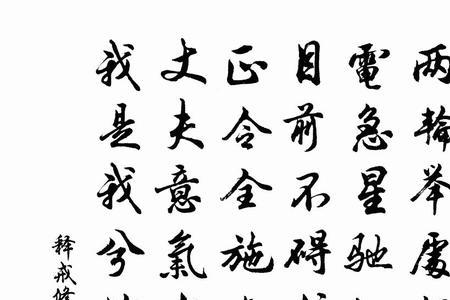 两輪举處
電急星馳
目前不碍
正令全施
丈夫意氣
我是我兮
释戒修